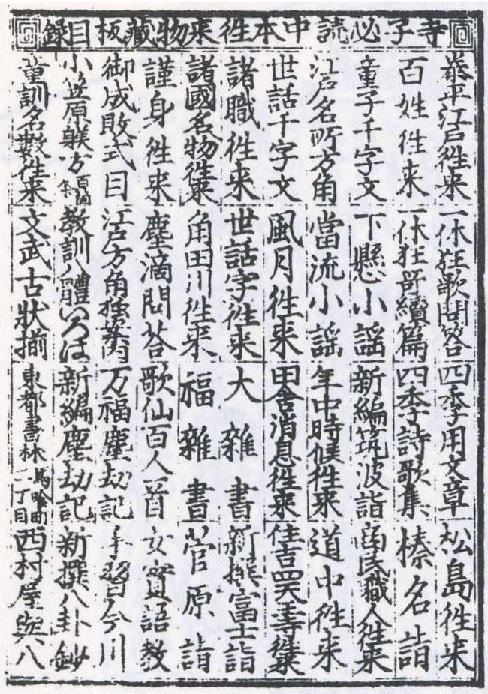 寺子必読中本徃来物藏板目録
泰平江戸徃来 一休狂歌問答 四季用文章 松島徃来
百姓徃来 一休狂哥續篇 四季詩歌集 榛名詣
童子千字文 下懸小謡 新編筑波詣 商民職人徃来
江戸名所方角 當流小謡 年中時候徃来 道中徃来
世話千字文 風月徃来 田舎消息徃来 住吉詣
諸職徃来 世話字徃来 大雜書 新撰富士詣
諸國名物徃来 角田川徃来 福雜書 菅原詣
謹身徃来 塵滴問荅 歌仙百人一首 女實語教
御成敗式目 江戸方角 万福塵劫記 手習今川
小笠原躾方 教訓八體いろは 新編塵劫記 新撰八卦鈔
童訓名數徃来 文武古狀揃 東都書林 馬喰町二丁目 西村屋與八